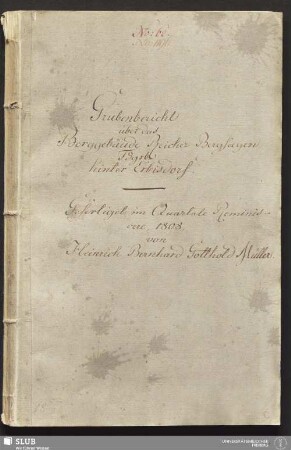 No: 60.
Grubenbericht
über das
Berggebäude Reicher Bergseegen
Fdgrb
hinter Erbisdorf
Gefertiget im Quartale Reminis-
cere 1808
von
Heinrich Bernhard Gotthold Müller
SLUB
Wir führen Wissen.
UNIVERSITÄTSBIBLIOTHEK
FREIBERG